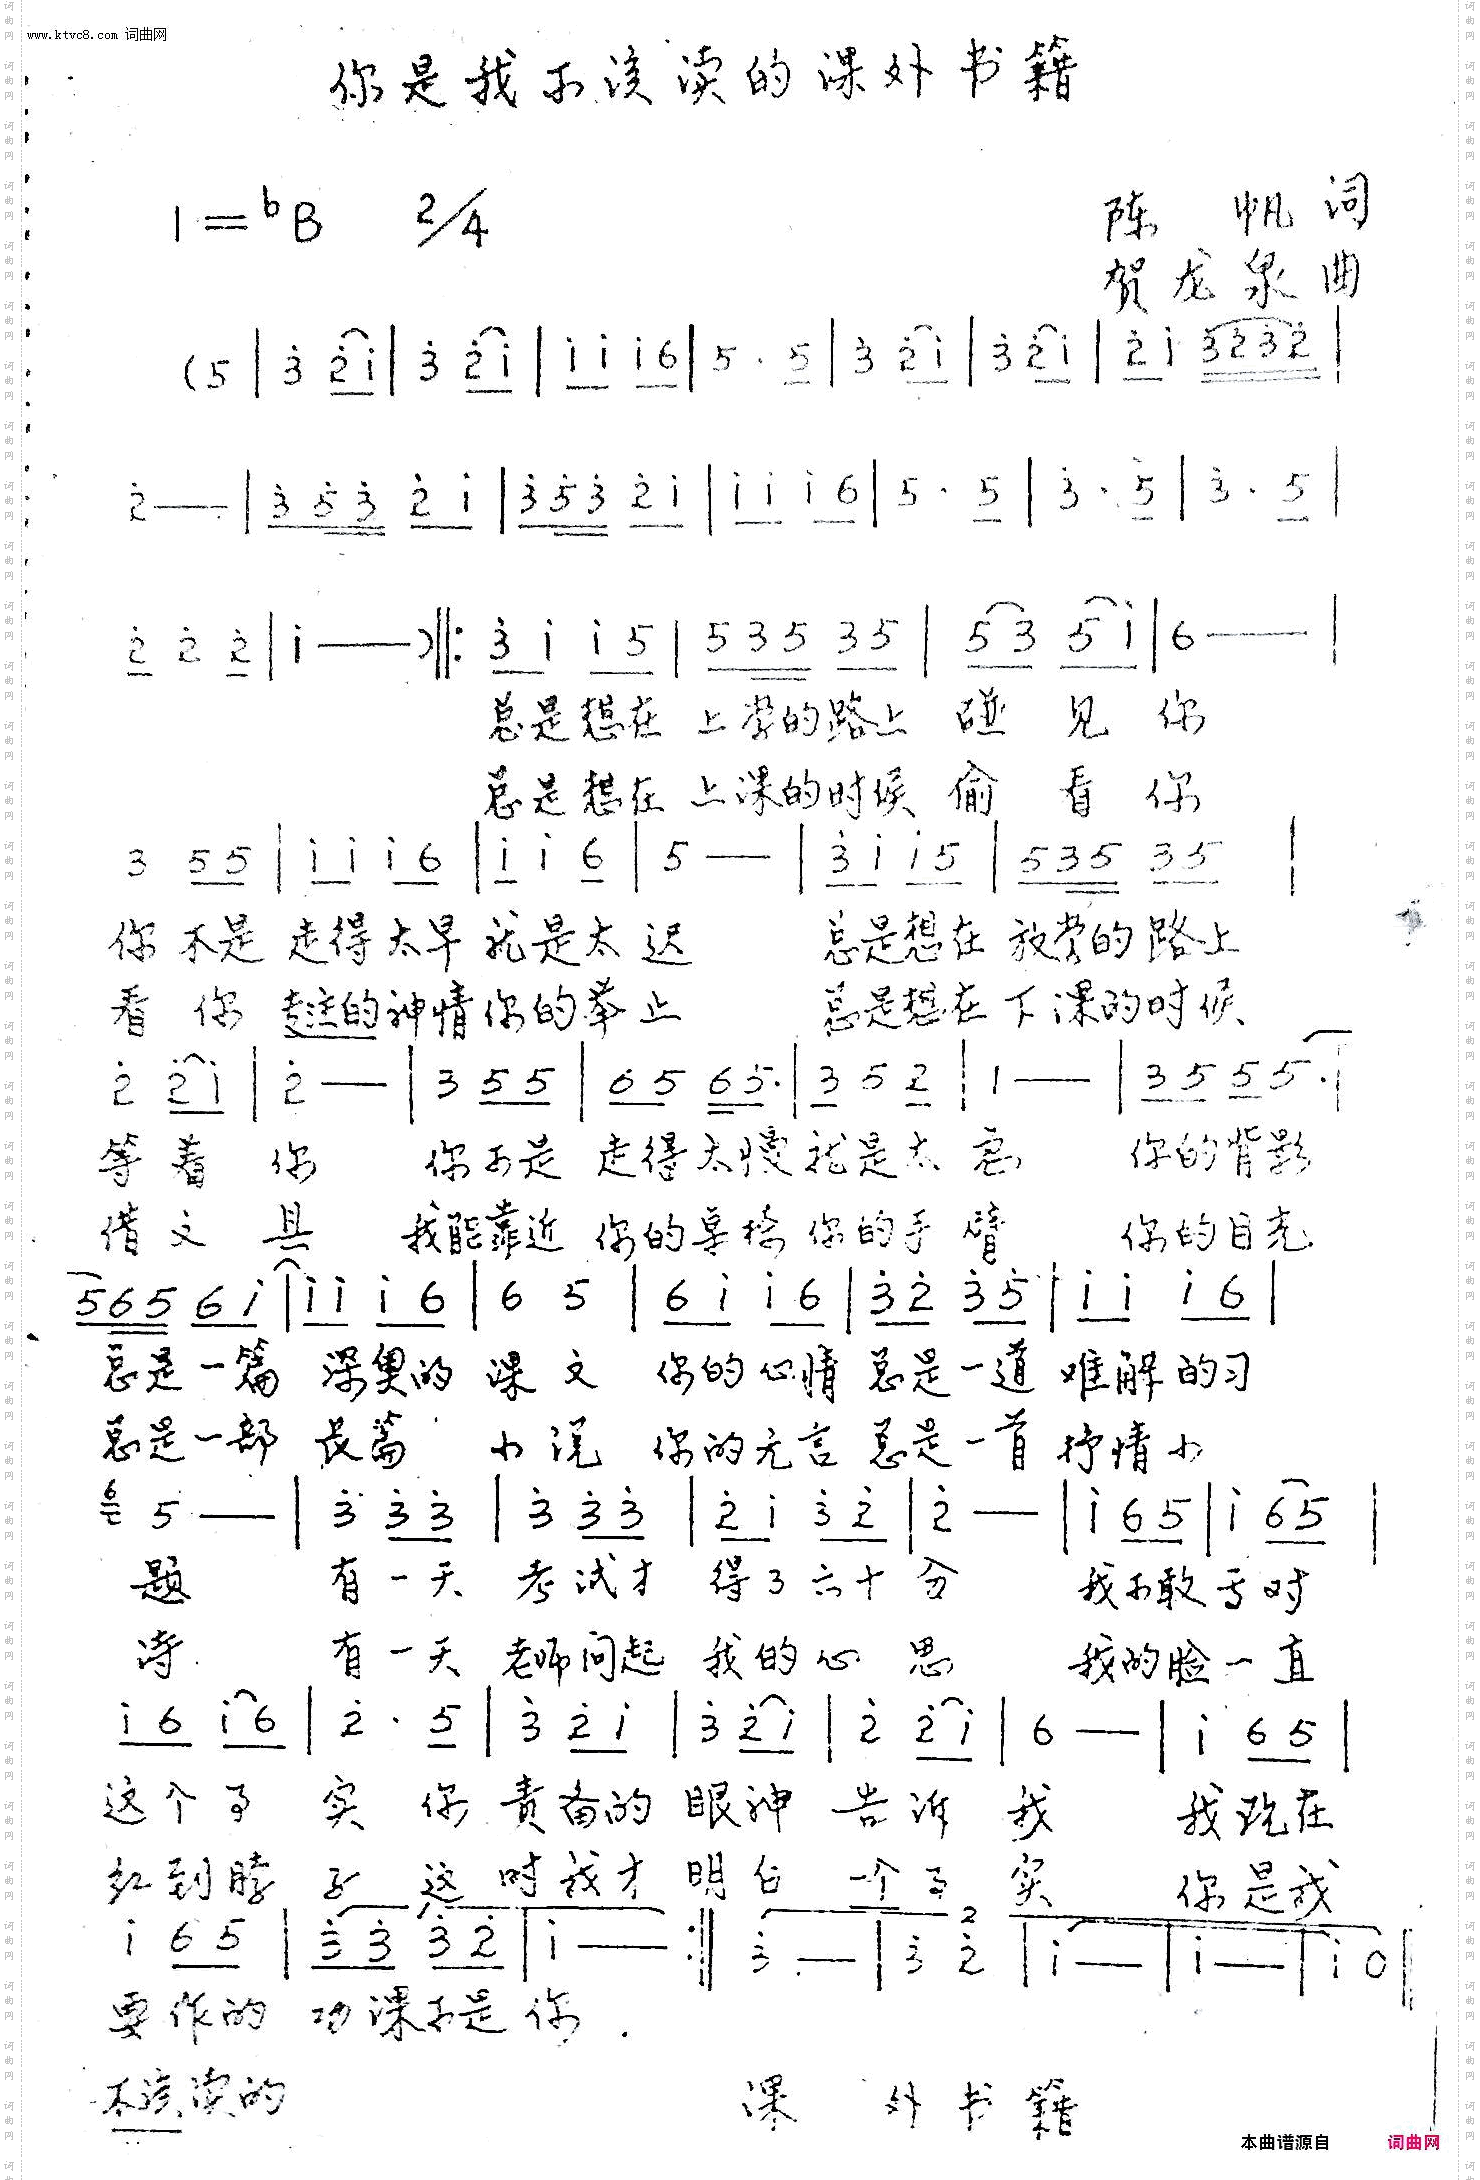 www.ktvc8.com 词曲网
你是我不该读的课外书籍
1=bB 2/4
陈 帆 词
贺龙泉 曲
(5 | 3̇ 2̇1̇ | 3̇ 2̇1̇ | 1̇1̇ 1̇6 | 5 · 5 | 3̇ 2̇1̇ | 3̇ 2̇1̇ | 2̇1̇ 3̇2̇3̇2̇ |
2̇ — | 3̇5̇3̇ 2̇1̇ | 3̇5̇3̇ 2̇1̇ | 1̇1̇ 1̇6 | 5 · 5 | 3̇ · 5̇ | 3̇ · 5 |
2̇ 2̇ 2̇ | 1̇ — ) ‖: 3̇1̇ 1̇5 | 535 35 | 53 51̇ | 6 — |
总是想在 上学的路上 碰 见 你
总是想在 上课的时候 偷 看 你
3 55 | 1̇1̇ 1̇6 | 1̇ 1̇ 6 | 5 — | 3̇1̇ 1̇5 | 535 35 |
你 不是 走得太早 就是太 迟 总是想在 放学的路上
看 你 走过的神情你的举止 总是想在下课的时候
2̇ 2̇1̇ | 2̇ — | 3 55 | 65 65· | 3 5 2 | 1 — | 35 55· |
等 着 你 你不是 走得太慢就是太 急 你的背影
借 文 具 我能靠近 你的桌椅你的手臂 你的目光
565 61̇ | 1̇1̇ 1̇6 | 6 5 | 61̇ 1̇6 | 3̇2̇ 3̇5̇ | 1̇1̇ 1̇6 |
总是一篇 深奥的 课 文 你的心情 总是一道 难解的习
总是一部 长篇 小说 你的无言 总是一首 抒情小
6 5 — | 3̇ 3̇3̇ | 3̇ 3̇3̇ | 2̇1̇ 3̇2̇ | 2̇ — | 1̇ 65 | 1̇ 65 |
题 有一天 考试才 得了六十分 我不敢面对
诗 有一天 老师问起 我的心思 我的脸一直
1̇6 1̇6 | 2̇ · 5 | 3̇ 2̇1̇ | 3̇ 2̇1̇ | 2̇ 2̇1̇ | 6 — | 1̇ 65 |
这个事 实 你 责备的 眼神 告诉 我 我现在
红到脖 子 这 时我才 明白 一个事 实 你是我
1̇ 65 | 3̇3̇ 3̇2̇ | 1̇ — :‖ 3̇ — | 3̇ 2̇ | 1̇ — | 1̇ — | 1̇ 0 ‖
2
要作的 功课不是 你.
不该读的 课 外 书 籍
本曲谱源自 词曲网